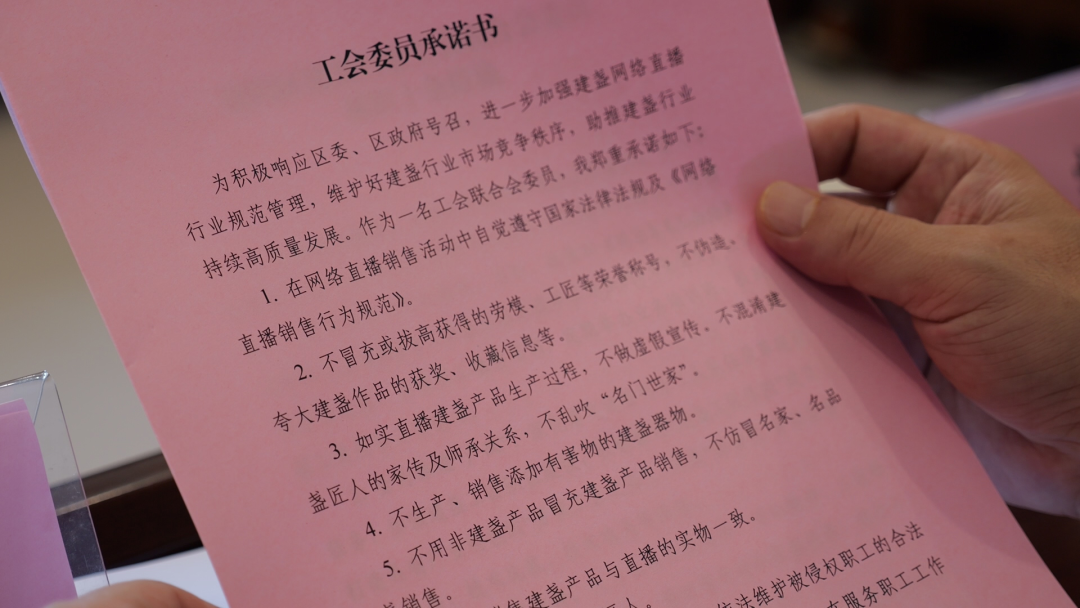 工会委员承诺书
为积极响应区委、区政府号召，进一步加强建盏网络直播
行业规范管理，维护好建盏行业市场竞争秩序，助推建盏行业
持续高质量发展。作为一名工会联合会委员，我郑重承诺如下：
1. 在网络直播销售活动中自觉遵守国家法律法规及《网络
直播销售行为规范》。
2. 不冒充或拔高获得的劳模、工匠等荣誉称号，不伪造、
夸大建盏作品的获奖、收藏信息等。
3. 如实直播建盏产品生产过程，不做虚假宣传。不混淆建
盏匠人的家传及师承关系，不乱吹“名门世家”。
4. 不生产、销售添加有害物的建盏器物。
5. 不用非建盏产品冒充建盏产品销售，不仿冒名家、名品
销售。
售建盏产品与直播的实物一致。
法维护被侵权职工的合法
匠人。
服务职工工作